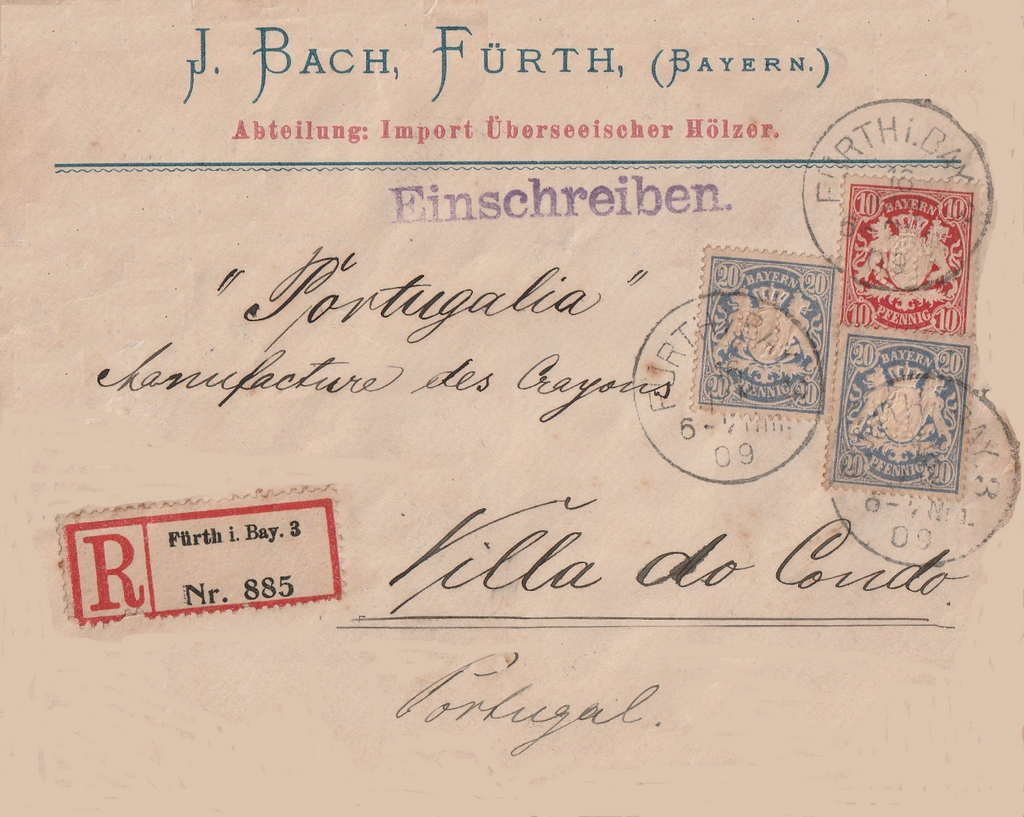 J. BACH, FÜRTH, (BAYERN.)
Abteilung: Import Überseeischer Hölzer.
Einschreiben.
FÜRTH i. BAY.
18
09
10 BAYERN 10
10 PFENNIG 10
"Portugalia"
Manufacture des Crayons
20 BAYERN 20
20 PFENNIG 20
FÜRTH i. BAY.
6-7 Nm.
09
20 BAYERN 20
20 PFENNIG 20
BAY. 3
6-7 Nm.
09
R
Fürth i. Bay. 3
Nr. 885
Villa do Condo.
Portugal.